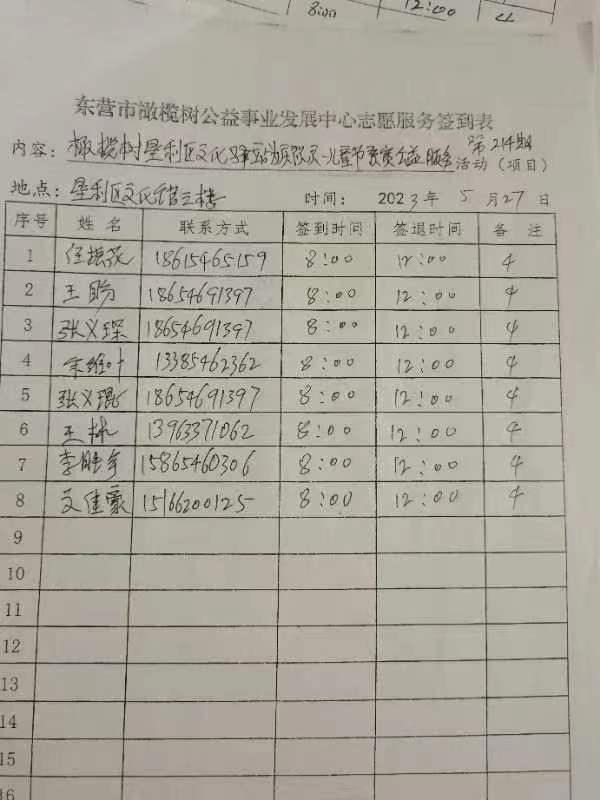 8:00 12:00 4
东营市橄榄树公益事业发展中心志愿服务签到表
内容：橄榄树垦利区文化 儿童节 公益服务 第214期 活动（项目）
地点：垦利区文化馆三楼 时间： 2023年 5 月27 日
序号 姓 名 联系方式 签到时间 签退时间 备 注
1 任振花 18615465159 8:00 12:00 4
2 王盼 18654691397 8:00 12:00 4
3 张义琛 18654691397 8:00 12:00 4
4 叶 13385462362 8:00 12:00 4
5 张义琨 18654691397 8:00 12:00 4
6 王林 13963371062 8:00 12:00 4
7 李胜军 15865460306 8:00 12:00 4
8 文佳豪 15166200125 8:00 12:00 4
9
10
11
12
13
14
15
16